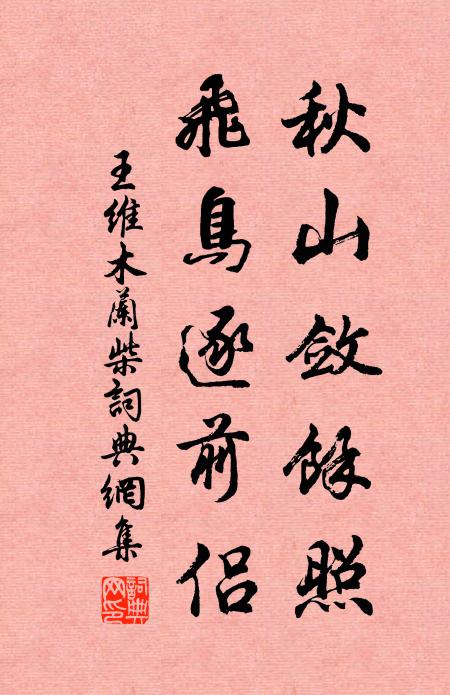 秋山斂餘照
飛鳥逐前侶
王維木蘭柴詞典網集
詞典網印